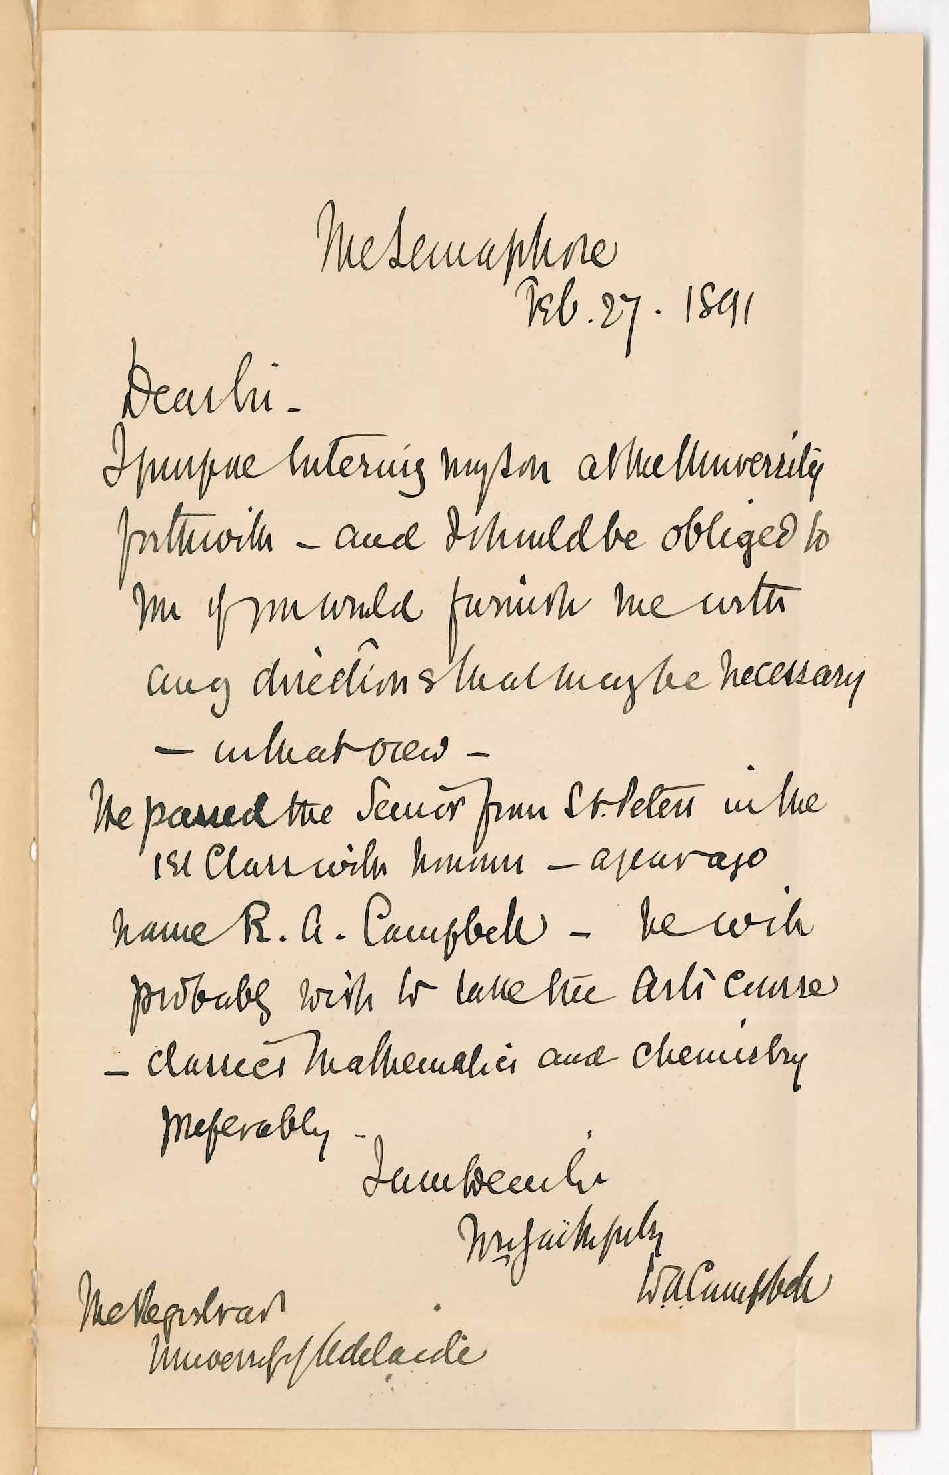 The Semaphore
Feb. 27. 1891
Dear Sir -
I purpose entering my son at the University
forthwith - and I should be obliged to
you if you would furnish me with
any directions that may be necessary
- in that view -
He passed the Senior from St. Peters in the
1st Class with honours - a year ago
name R. A. Campbell - he will
probably wish to take the Arts course
- classics Mathematics and chemistry
preferably -
I am Dear Sir
Yrs faithfully
W.A. Campbell
The Registrar
University of Adelaide